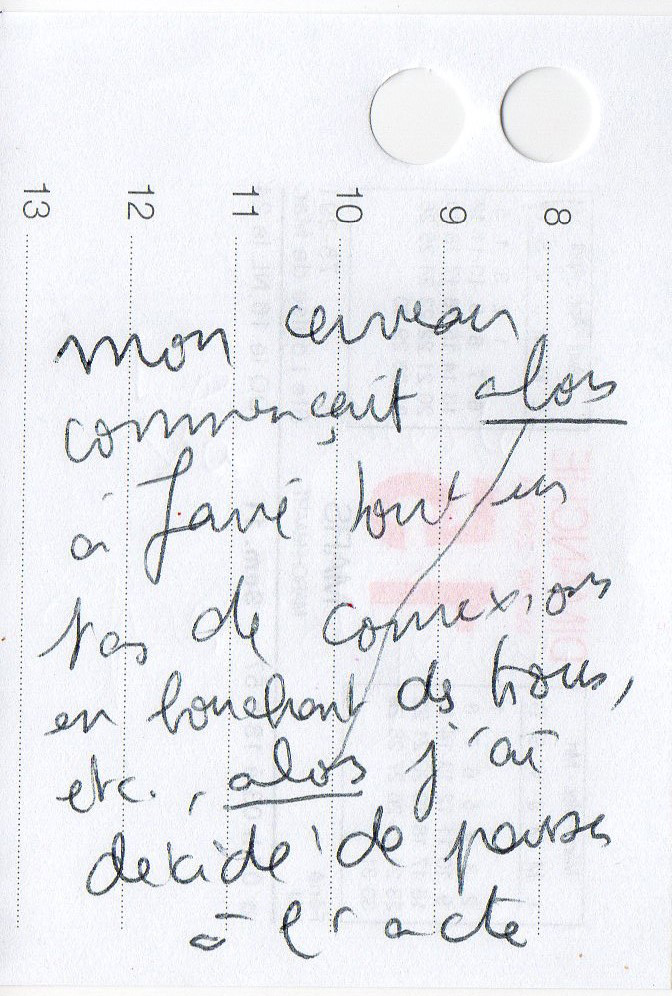 8
9
10
11
12
13
mon cerveau
commençait alors
à faire tout un
tas de connexions
en bouchant des trous,
etc., alors j'ai
décidé de passer
à l'acte